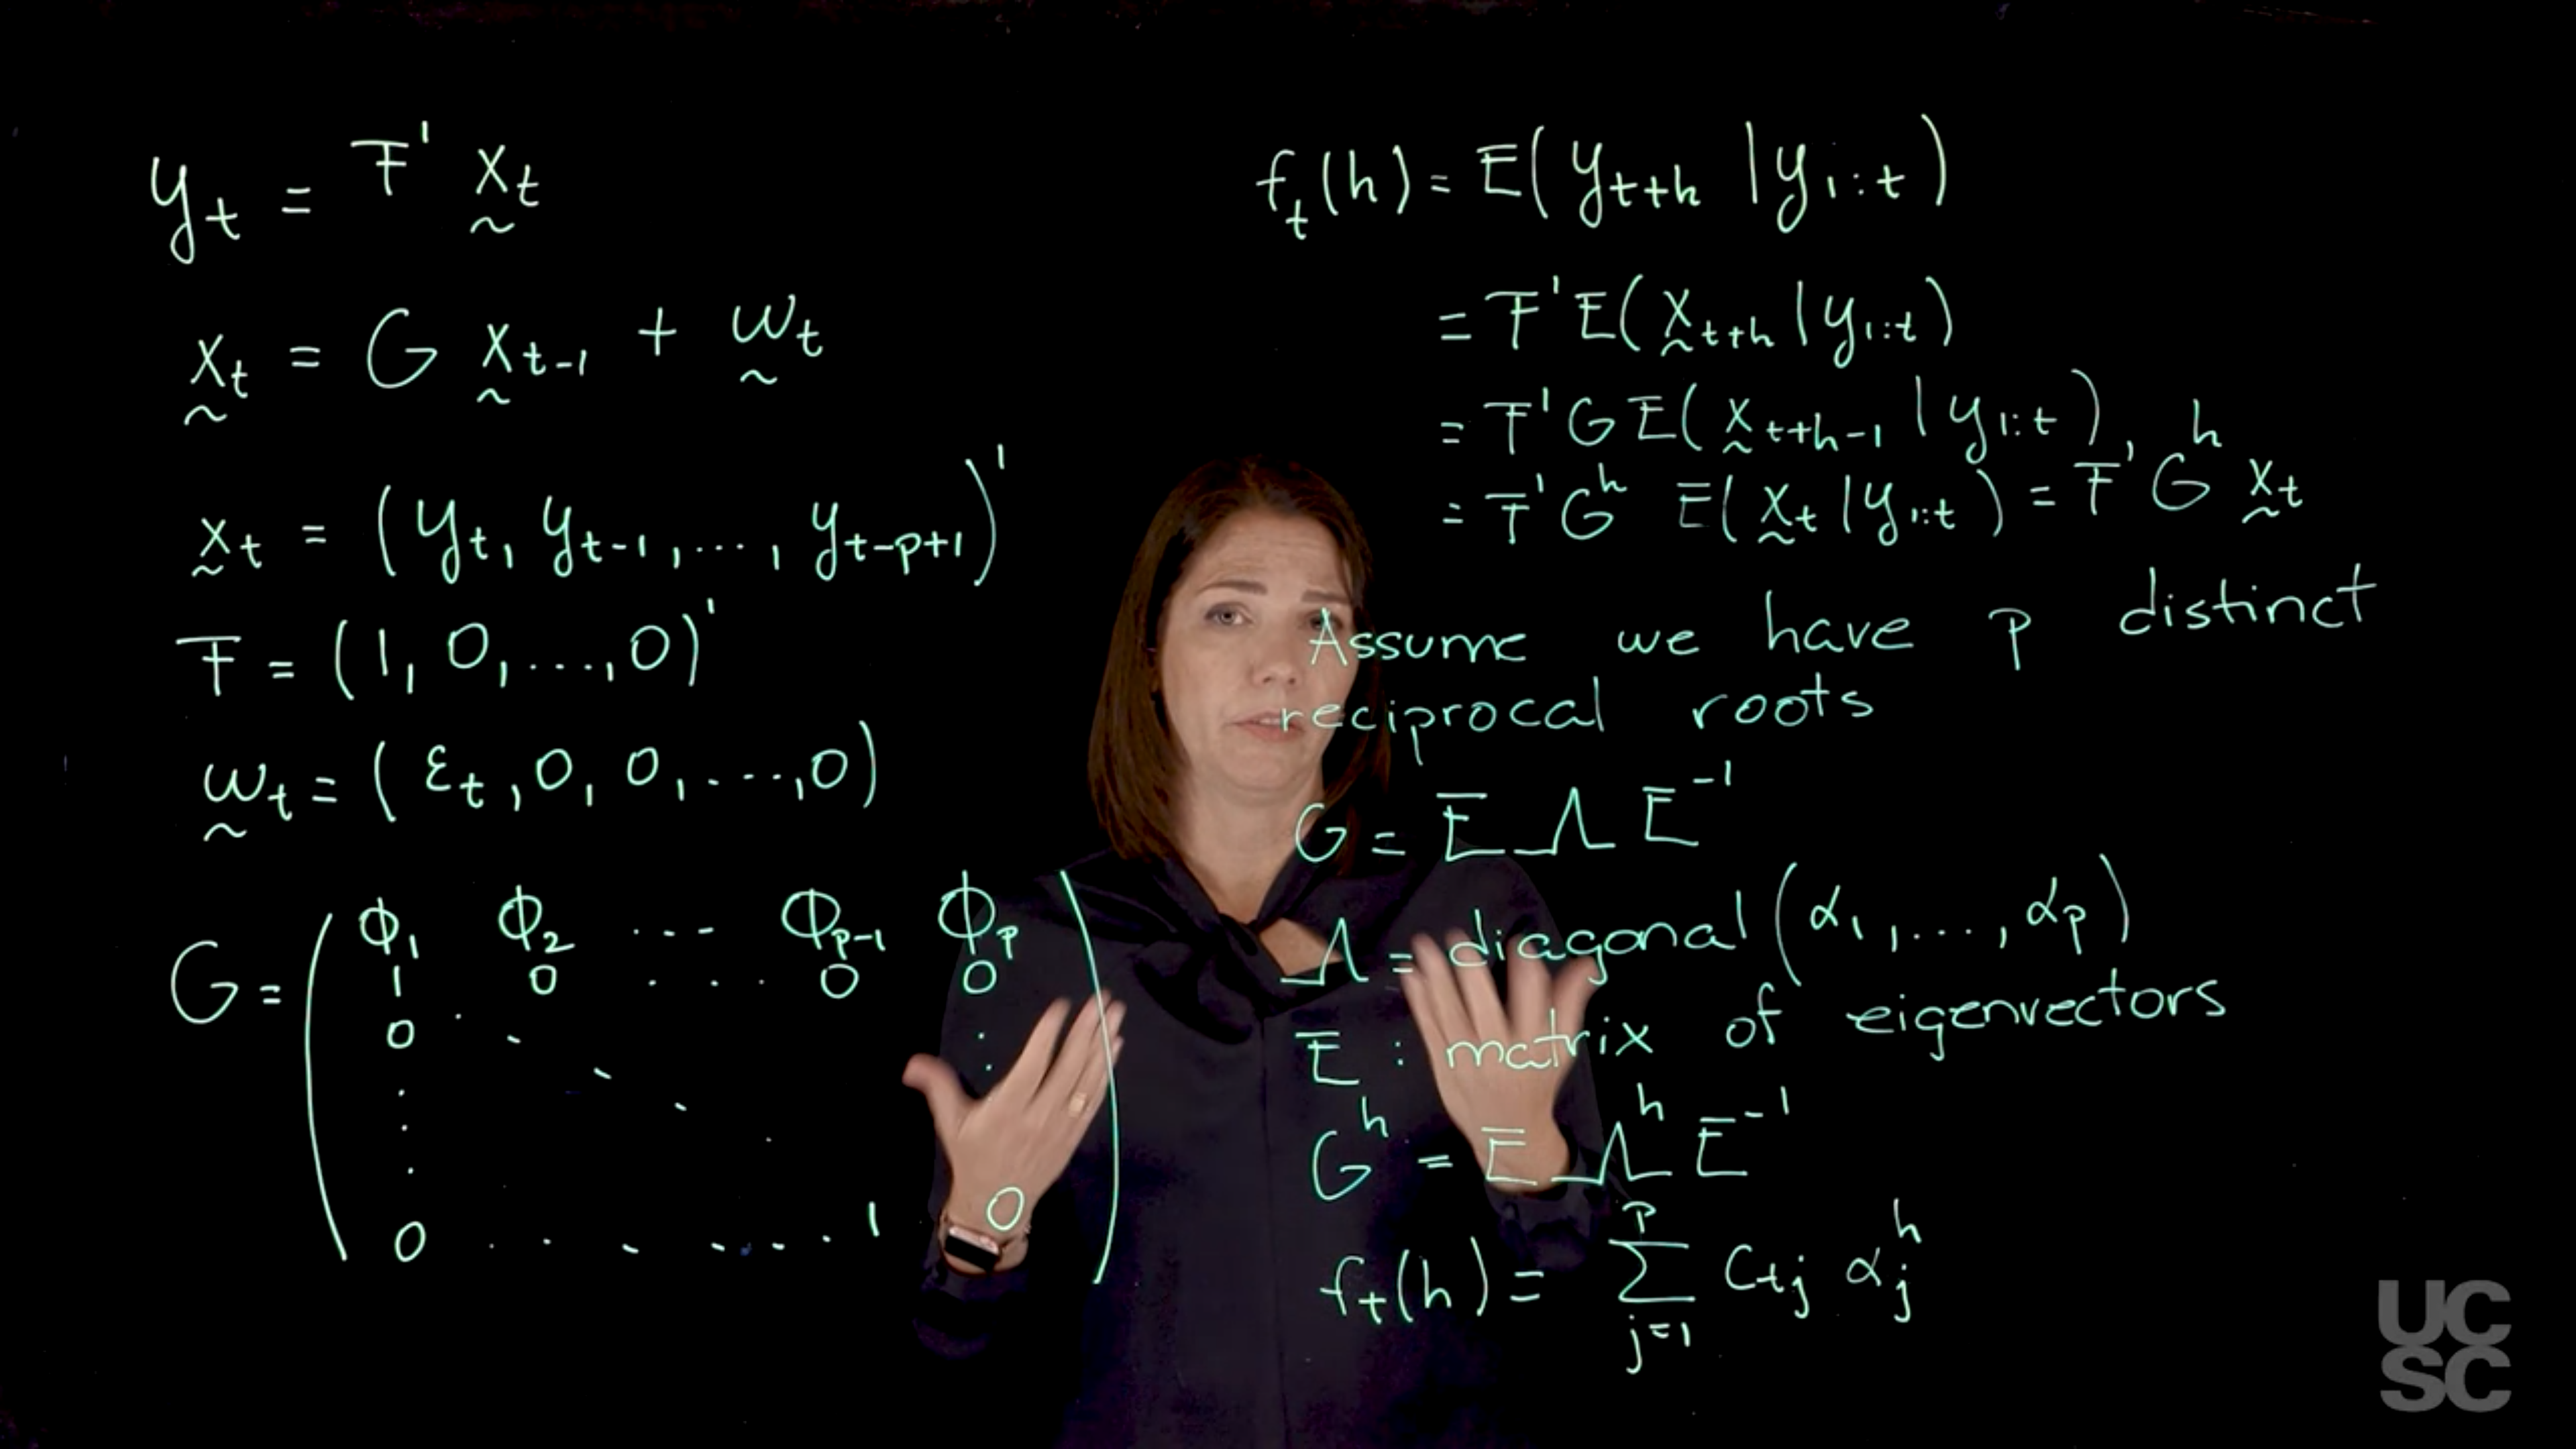 y_t = F' x_t
x_t = G x_{t-1} + w_t
x_t = (y_t, y_{t-1}, ..., y_{t-p+1})'
F = (1, 0, ..., 0)'
w_t = (ε_t, 0, 0, ..., 0)
G = ( φ_1 φ_2 ... φ_{p-1} φ_p
1 0 ... 0 0
0 . . . . :
. . .
0 . . . . . . 1 0 )
f_t(h) = E(y_{t+h} | y_{1:t})
= F' E(x_{t+h} | y_{1:t})
= F' G E(x_{t+h-1} | y_{1:t}),
= F' G^h E(x_t | y_{1:t}) = F' G^h x_t
Assume we have p distinct
reciprocal roots
G = E Λ E^{-1}
Λ = diagonal (α_1, ..., α_p)
E : matrix of eigenvectors
G^h = E Λ^h E^{-1}
f_t(h) = Σ_{j=1}^{p} c_{tj} α_j^h
UC
SC